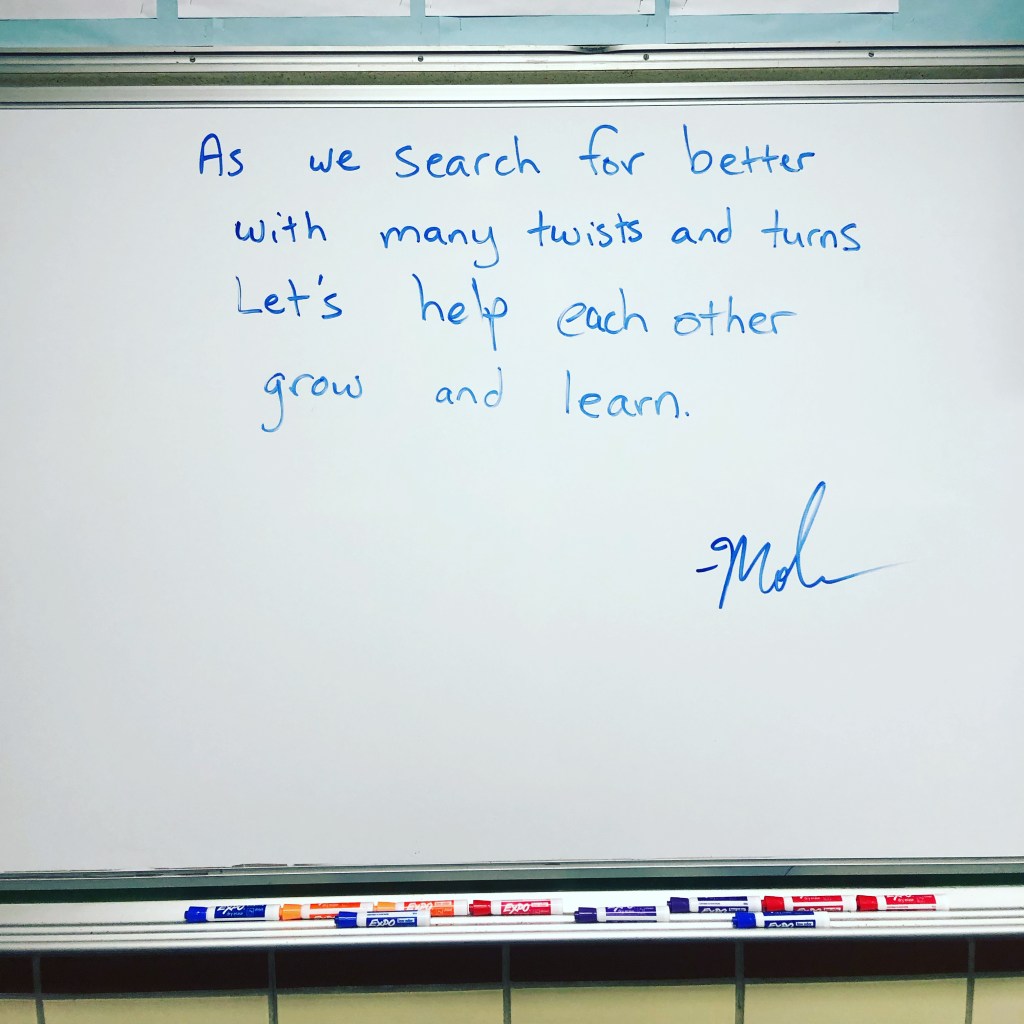 As we search for better
with many twists and turns
Let's help each other
grow and learn.
EXPO
EXPO
EXPO
EXPO
EXPO